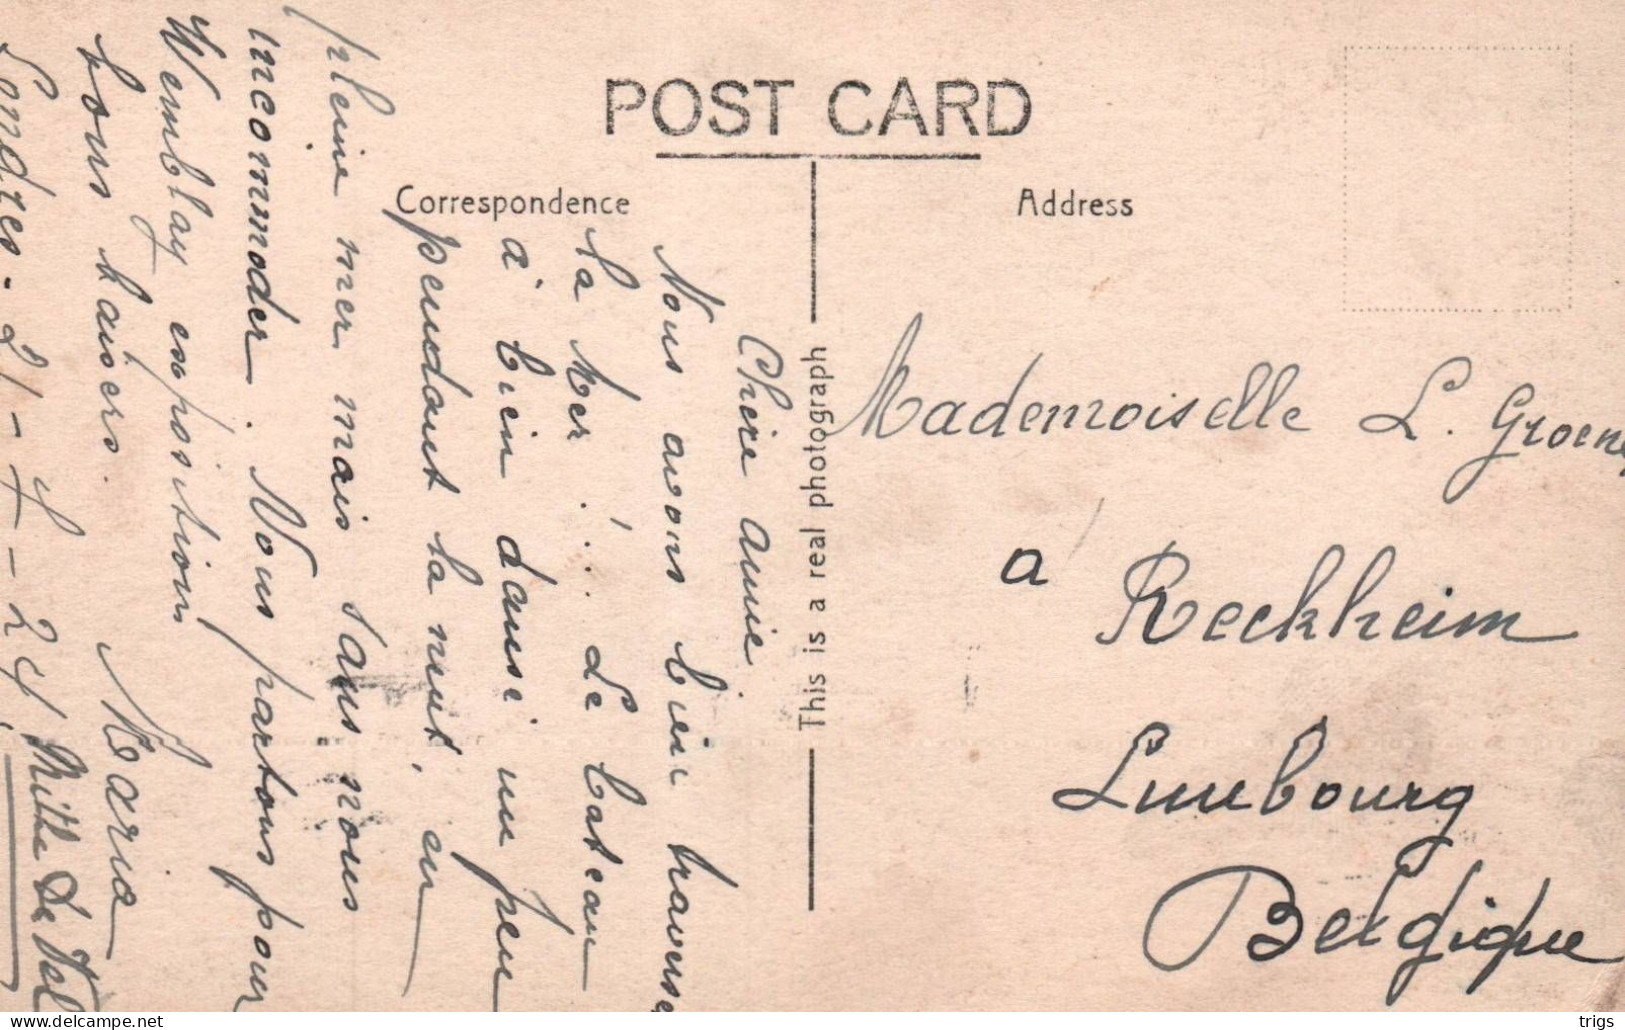 POST CARD
Correspondence
Address
This is a real photograph
Chère amie
Nous avons bien traversé
la Mer ... Le bateau
à bien dansé un peu
pendant la nuit, en
pleine mer mais sans nous
incommoder. Nous partons pour
Wemblay exposition
bons baisers.
Maria
Londres - 21 - 7 - 24
Mademoiselle L. Groene
a Reckheim
Limbourg
Belgique
website
trigs